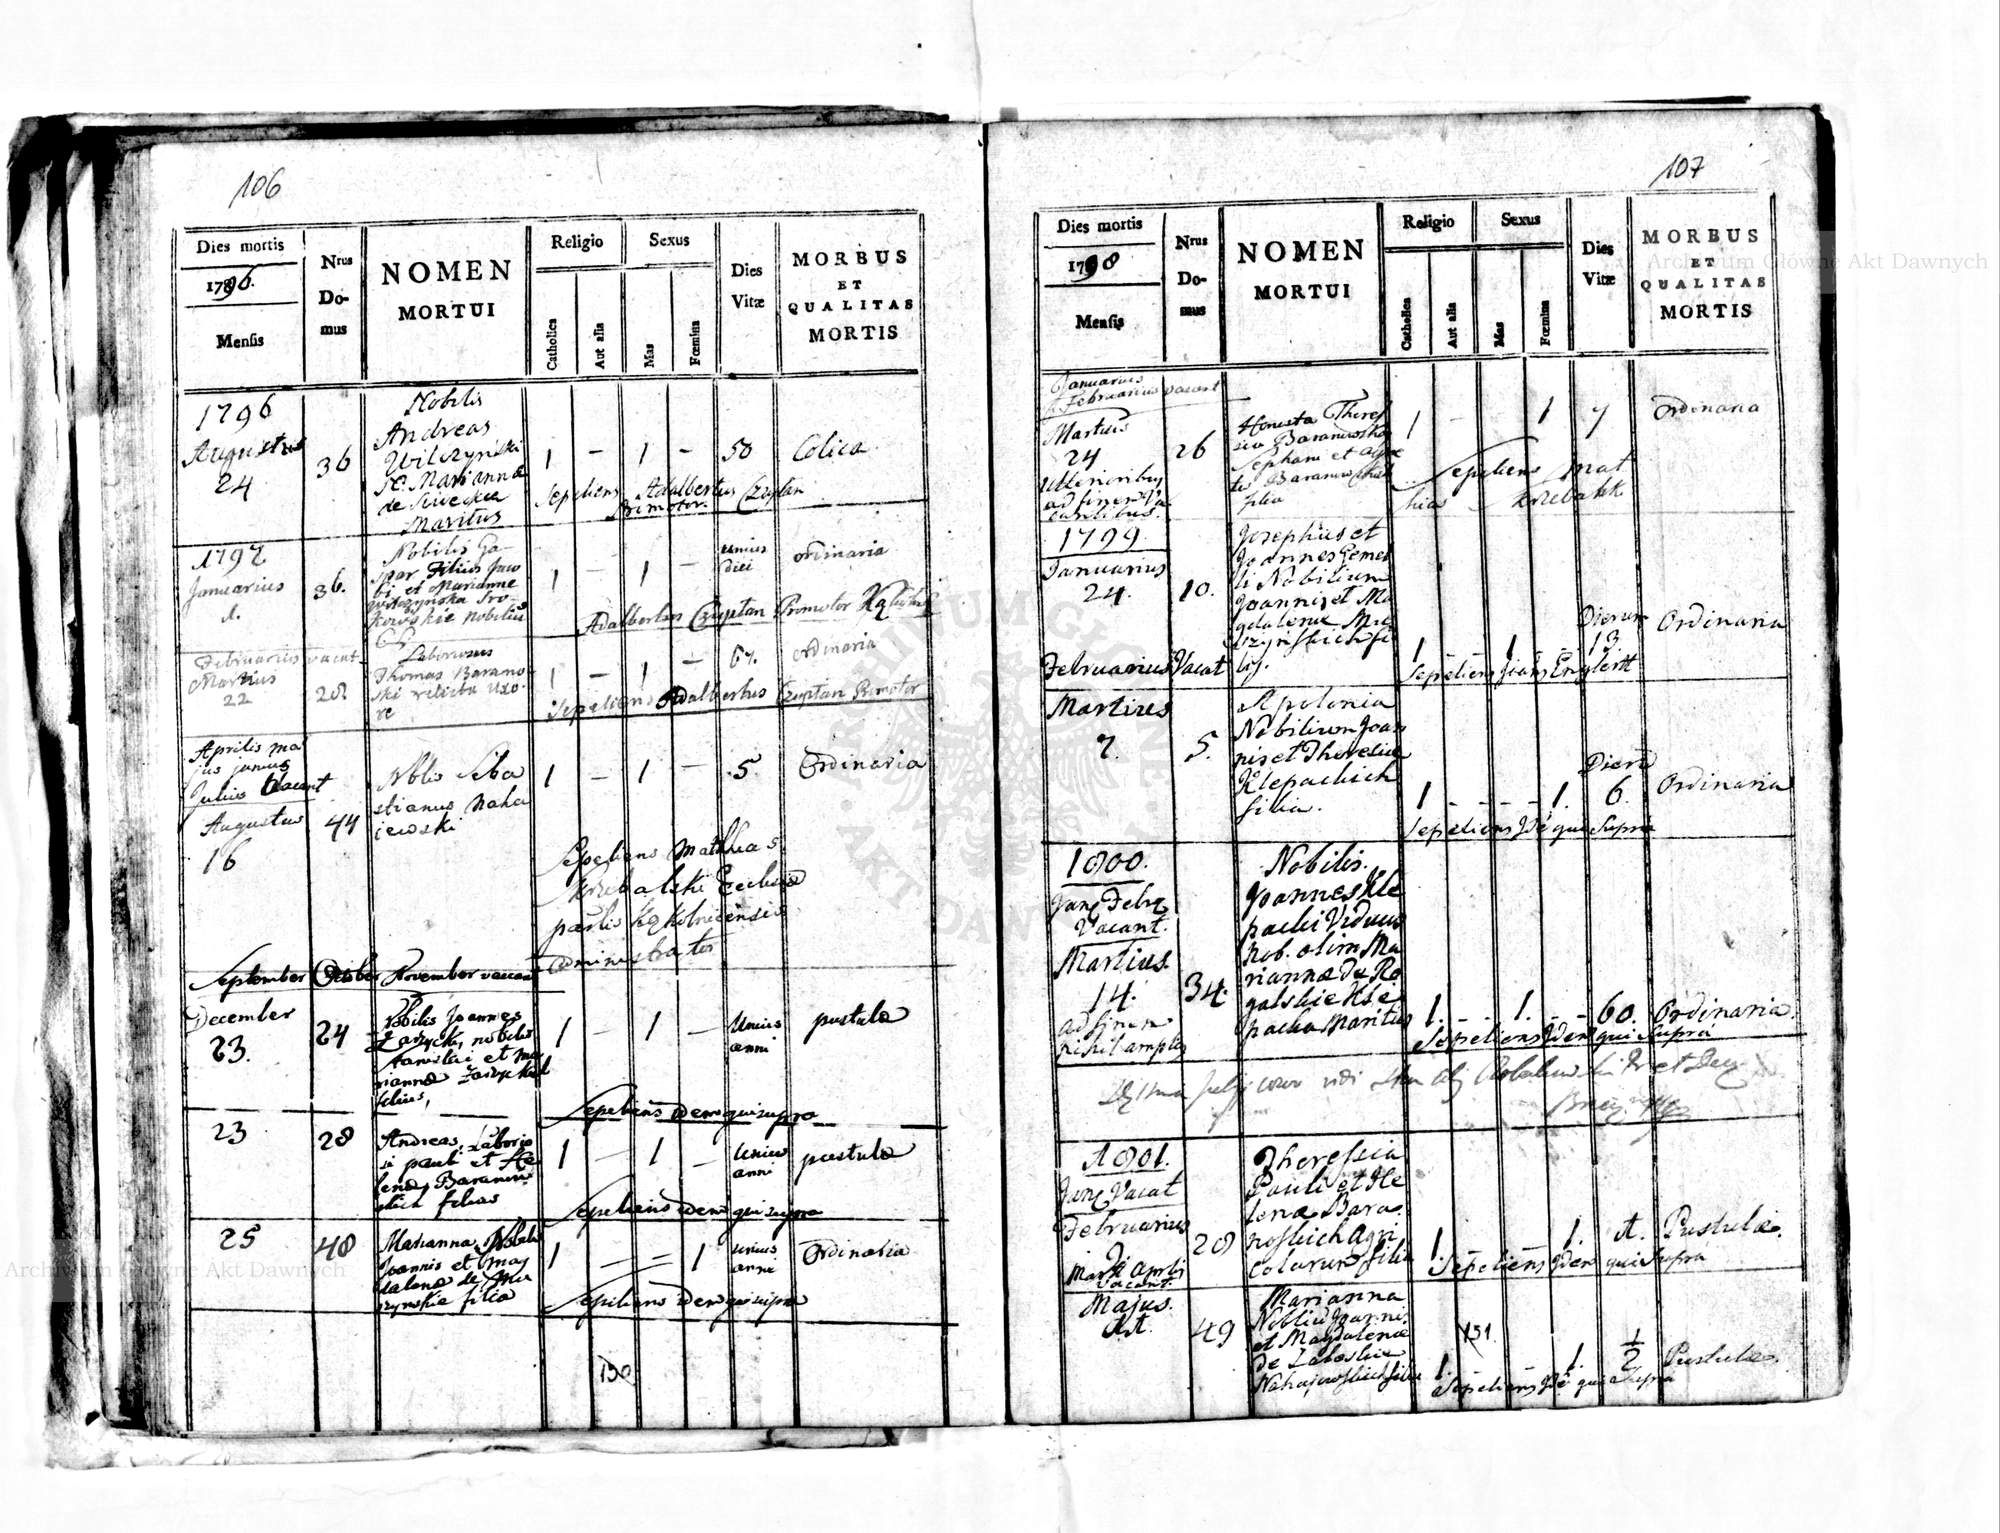 106
Dies mortis
1796.
Mensis
Nrus
Do-
mus
NOMEN
MORTUI
Religio
Catholica
Aut alia
Sexus
Mas
Fœmina
Dies
Vitæ
MORBUS
ET
QUALITAS
MORTIS
1796
Augustus
24
36
Nobilis
Andreas
Wilczynski
Mariannæ
de
Maritus
1 - 1 - 50 Colica
Sepeliens Adalbertus Czyptan
Promotor.
1797
Januarius
1.
36.
Nobilis Ga-
spar Filius Jaco
bi et Marianne
Wilczynska Sro-
kowskie Nobilium
1 - 1 - unius
diei
ordinaria
Adalbertus Czyptan Promotor
Februarius vacat
Martius
22
28
Laboriosus
Thomas Barano-
ski relicta uxo-
re
1 - 1 - 67. ordinaria
Sepeliens Adalbertus Czyptan Promotor
Aprilis ma
jus junius
Julius Vacant
Augustus
16
44
Nblis Seba
stianus Naha
jewski
1 - 1 - 5. Ordinaria
Sepeliens Mathias
Krzebalski Ecclesiæ
parlis Kąkolnicensis
Administrator
September October November vacant
December
23.
24
Nobilis Joannes
Zarycki, nobilis
Stanislai et Ma
riannæ Zaryckich
filius,
1 - 1 - Unius
anni
pustulæ
Sepeliens idem qui supra
23
28
Andreas, Laborio
si pauli et He
lenæ Baranow
skich filius
1 - 1 - Unius
anni
pustulæ
Sepeliens idem qui supra
25
48
Marianna, Nobilis
Joannis et Mag
dalenæ de Mu
szynskie filia
1 - = 1 unius
anni
Ordinaria
Sepeliens idem qui supra
150
107
Dies mortis
1798
Mensis
Nrus
Do-
mus
NOMEN
MORTUI
Religio
Catholica
Aut alia
Sexus
Mas
Fœmina
Dies
Vitæ
MORBUS
ET
QUALITAS
MORTIS
Januarius
Februarius vacant
Martius
24
Ulterioribus
ad finem Va
cantibus.
26
Honesta Theres
sia Baranowska
Stephani et Agne
tis Baranowskich
filia
1 - 1 7 Ordinaria
Sepeliens Mat
hias Krzebalski
1799.
Januarius
24.
10.
Josephus et
Joannes Gemel
li Nobilium
Joannis et Ma
gdalenæ Mu
szynskich fi
lij.
Dierum
13
1 - 1 - Ordinaria
Sepeliens Joans Englertt
Februarius Vacat
Martius
7.
5.
Apolonia
Nobilium Joan
nis et Theresiæ
Klepackich
filia.
Dierū
1 - - - 1. 6. Ordinaria
Sepeliens Idē qui Supra
1800.
Jan Febr
Vacant.
Martius.
14.
ad finem
nihil amplius
34.
Nobilis.
Joannes Kle
packi Viduus
Nob. olim Ma
riannæ de Ro
galskie Kle
packa Maritus
1. - 1. - 60. Ordinaria.
Sepeliens Idem qui Supra
1801.
Jan Vacat
Februarius
20
Mart Aprlis
vacant.
Theressia
Pauli et He
lenæ Bara
noskich Agri
colarum filia
1. 1. 1. Pustulæ.
Sepeliens Idem qui Supra
Majus.
49
Marianna
Nobliū Joannis
et Magdalenæ
de Zaleskie
Nahajowskich filia
151
1. 1. 1/2 Pustulæ.
Sepeliens Idē qui Supra
Archiwum Główne Akt Dawnych
Archiwum Główne Akt Dawnych
ARCHIWUM GŁÓWNE
AKT DAWNYCH